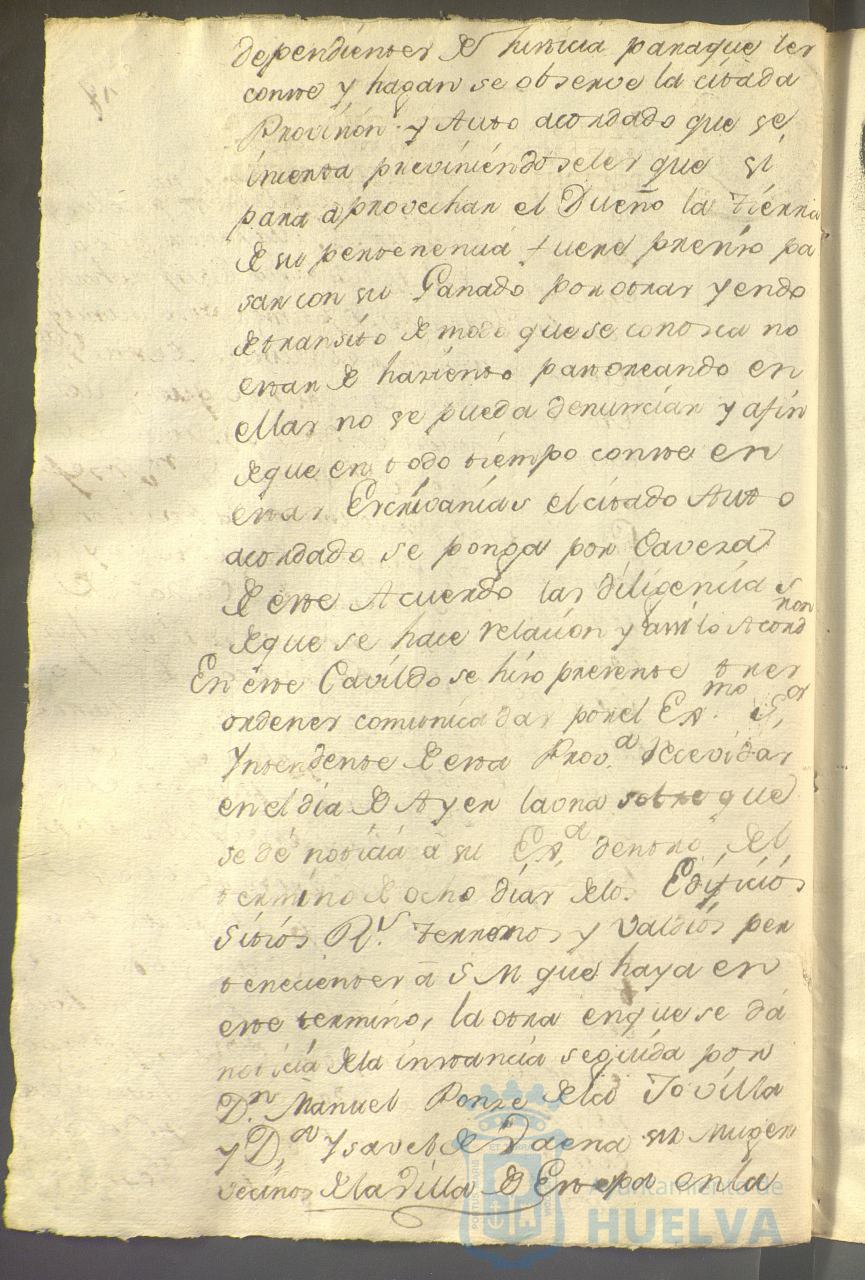 dependientes de Justicia para que les
conste y hagan se observe la citada
Provision y Auto acordado que se
incerta previniendoseles que si
para aprovechar el Dueño la tierra
de su pertenencia fuere presiso pa
sar con su Ganado por otras yendo
de transito de modo que se conosca no
estar de haciento pastoreando en
ellas no se pueda denunciar y afin
de que en todo tiempo conste en
estas Escrivanias el citado Auto
acordado se ponga por Caveza
de este Acuerdo las diligencias
de que se hace relacion y assi lo Acord
ron
En este Cavildo se hiso presente tres
ordenes comunicadas por el Ex.mo S.or
Yntendente de esta Prov.a recevidas
en el dia de Ayer la una sobre que
se dé noticia â su Ex.a dentro del
termino de ocho dias de lo. Edificios
Sitios R.s terrenos y valdios per
tenecientes â S M que haya en
este termino, la otra en que se dá
noticia de la instancia seguida por
D.n Manuel Ponze de la Jovilla
y D.a Ysavel de Baena su Muger
vecinos de la villa de Estepa en la
Ayuntamiento de
HUELVA